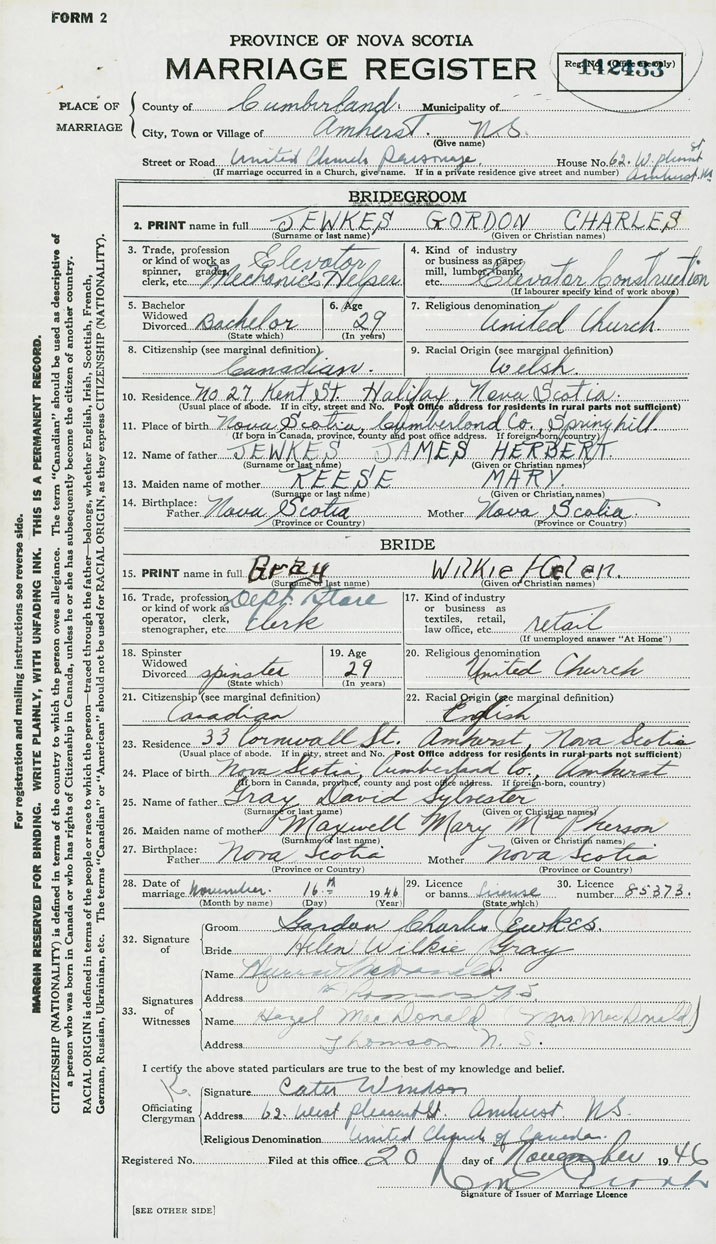 FORM 2
PROVINCE OF NOVA SCOTIA
MARRIAGE REGISTER
Reg. No. (Office use only)
142433
PLACE OF MARRIAGE
County of Cumberland. Municipality of
City, Town or Village of Amherst. N.S.
(Give name)
Street or Road United Church Parsonage. House No. 62. W. pleasant St
(If marriage occurred in a Church, give name. If in a private residence give street and number) Amherst. N.S.
BRIDEGROOM
2. PRINT name in full JEWKES GORDON CHARLES
(Surname or last name) (Given or Christian names)
3. Trade, profession or kind of work as spinner, grader, clerk, etc. Elevator Mechanic's Helper
4. Kind of industry or business as paper mill, lumber, bank, etc. Elevator Construction
(If labourer specify kind of work above)
5. Bachelor Widowed Divorced Bachelor (State which)
6. Age 29 (In years)
7. Religious denomination United Church.
8. Citizenship (see marginal definition) Canadian.
9. Racial Origin (see marginal definition) Welsh.
10. Residence No. 27, Kent St. Halifax, Nova Scotia.
(Usual place of abode. If in city, street and No. Post Office address for residents in rural parts not sufficient)
11. Place of birth Nova Scotia, Cumberland Co., Springhill
(If born in Canada, province, county and post office address. If foreign-born, country)
12. Name of father JEWKES JAMES HERBERT.
(Surname or last name) (Given or Christian names)
13. Maiden name of mother REESE MARY.
(Surname or last name) (Given or Christian names)
14. Birthplace: Father Nova Scotia Mother Nova Scotia.
(Province or Country) (Province or Country)
BRIDE
15. PRINT name in full Gray Wilkie Helen.
(Surname or last name) (Given or Christian names)
16. Trade, profession or kind of work as operator, clerk, stenographer, etc. Dept. Store Clerk
17. Kind of industry or business as textiles, retail, law office, etc. retail
(If unemployed answer "At Home")
18. Spinster Widowed Divorced spinster (State which)
19. Age 29 (In years)
20. Religious denomination United Church
21. Citizenship (see marginal definition) Canadian
22. Racial Origin (see marginal definition) English
23. Residence 33 Cornwall St. Amherst, Nova Scotia
(Usual place of abode. If in city, street and No. Post Office address for residents in rural parts not sufficient)
24. Place of birth Nova Scotia, Cumberland Co., Amherst
(If born in Canada, province, county and post office address. If foreign-born, country)
25. Name of father Gray David Sylvester
(Surname or last name) (Given or Christian names)
26. Maiden name of mother Maxwell Mary MacPherson
(Surname or last name) (Given or Christian names)
27. Birthplace: Father Nova Scotia Mother Nova Scotia
(Province or Country) (Province or Country)
28. Date of marriage November. 16th 1946
(Month by name) (Day) (Year)
29. Licence or banns license (State which)
30. Licence number 85373.
32. Signature of
Groom Gordon Charles Jewkes.
Bride Helen Wilkie Gray
33. Signatures of Witnesses
Name MacDonald.
Address N.S.
Name Hazel MacDonald (Mrs. MacDonald)
Address Thomson N. S.
I certify the above stated particulars are true to the best of my knowledge and belief.
Officiating Clergyman
Signature Cater Windsor
Address 62. West pleasant St. Amherst NS.
Religious Denomination United Church of Canada.
Registered No. Filed at this office 20 day of November 1946
Signature of Issuer of Marriage Licence
[SEE OTHER SIDE]
For registration and mailing instructions see reverse side.
MARGIN RESERVED FOR BINDING. WRITE PLAINLY, WITH UNFADING INK. THIS IS A PERMANENT RECORD.
CITIZENSHIP (NATIONALITY) is defined in terms of the country to which the person owes allegiance. The term "Canadian" should be used as descriptive of
a person who was born in Canada or who has rights of Citizenship in Canada, unless he or she has subsequently become the citizen of another country.
RACIAL ORIGIN is defined in terms of the people or race to which the person—traced through the father—belongs, whether English, Irish, Scottish, French,
German, Russian, Ukrainian, etc. The terms "Canadian" or "American" should not be used for RACIAL ORIGIN, as they express CITIZENSHIP (NATIONALITY).